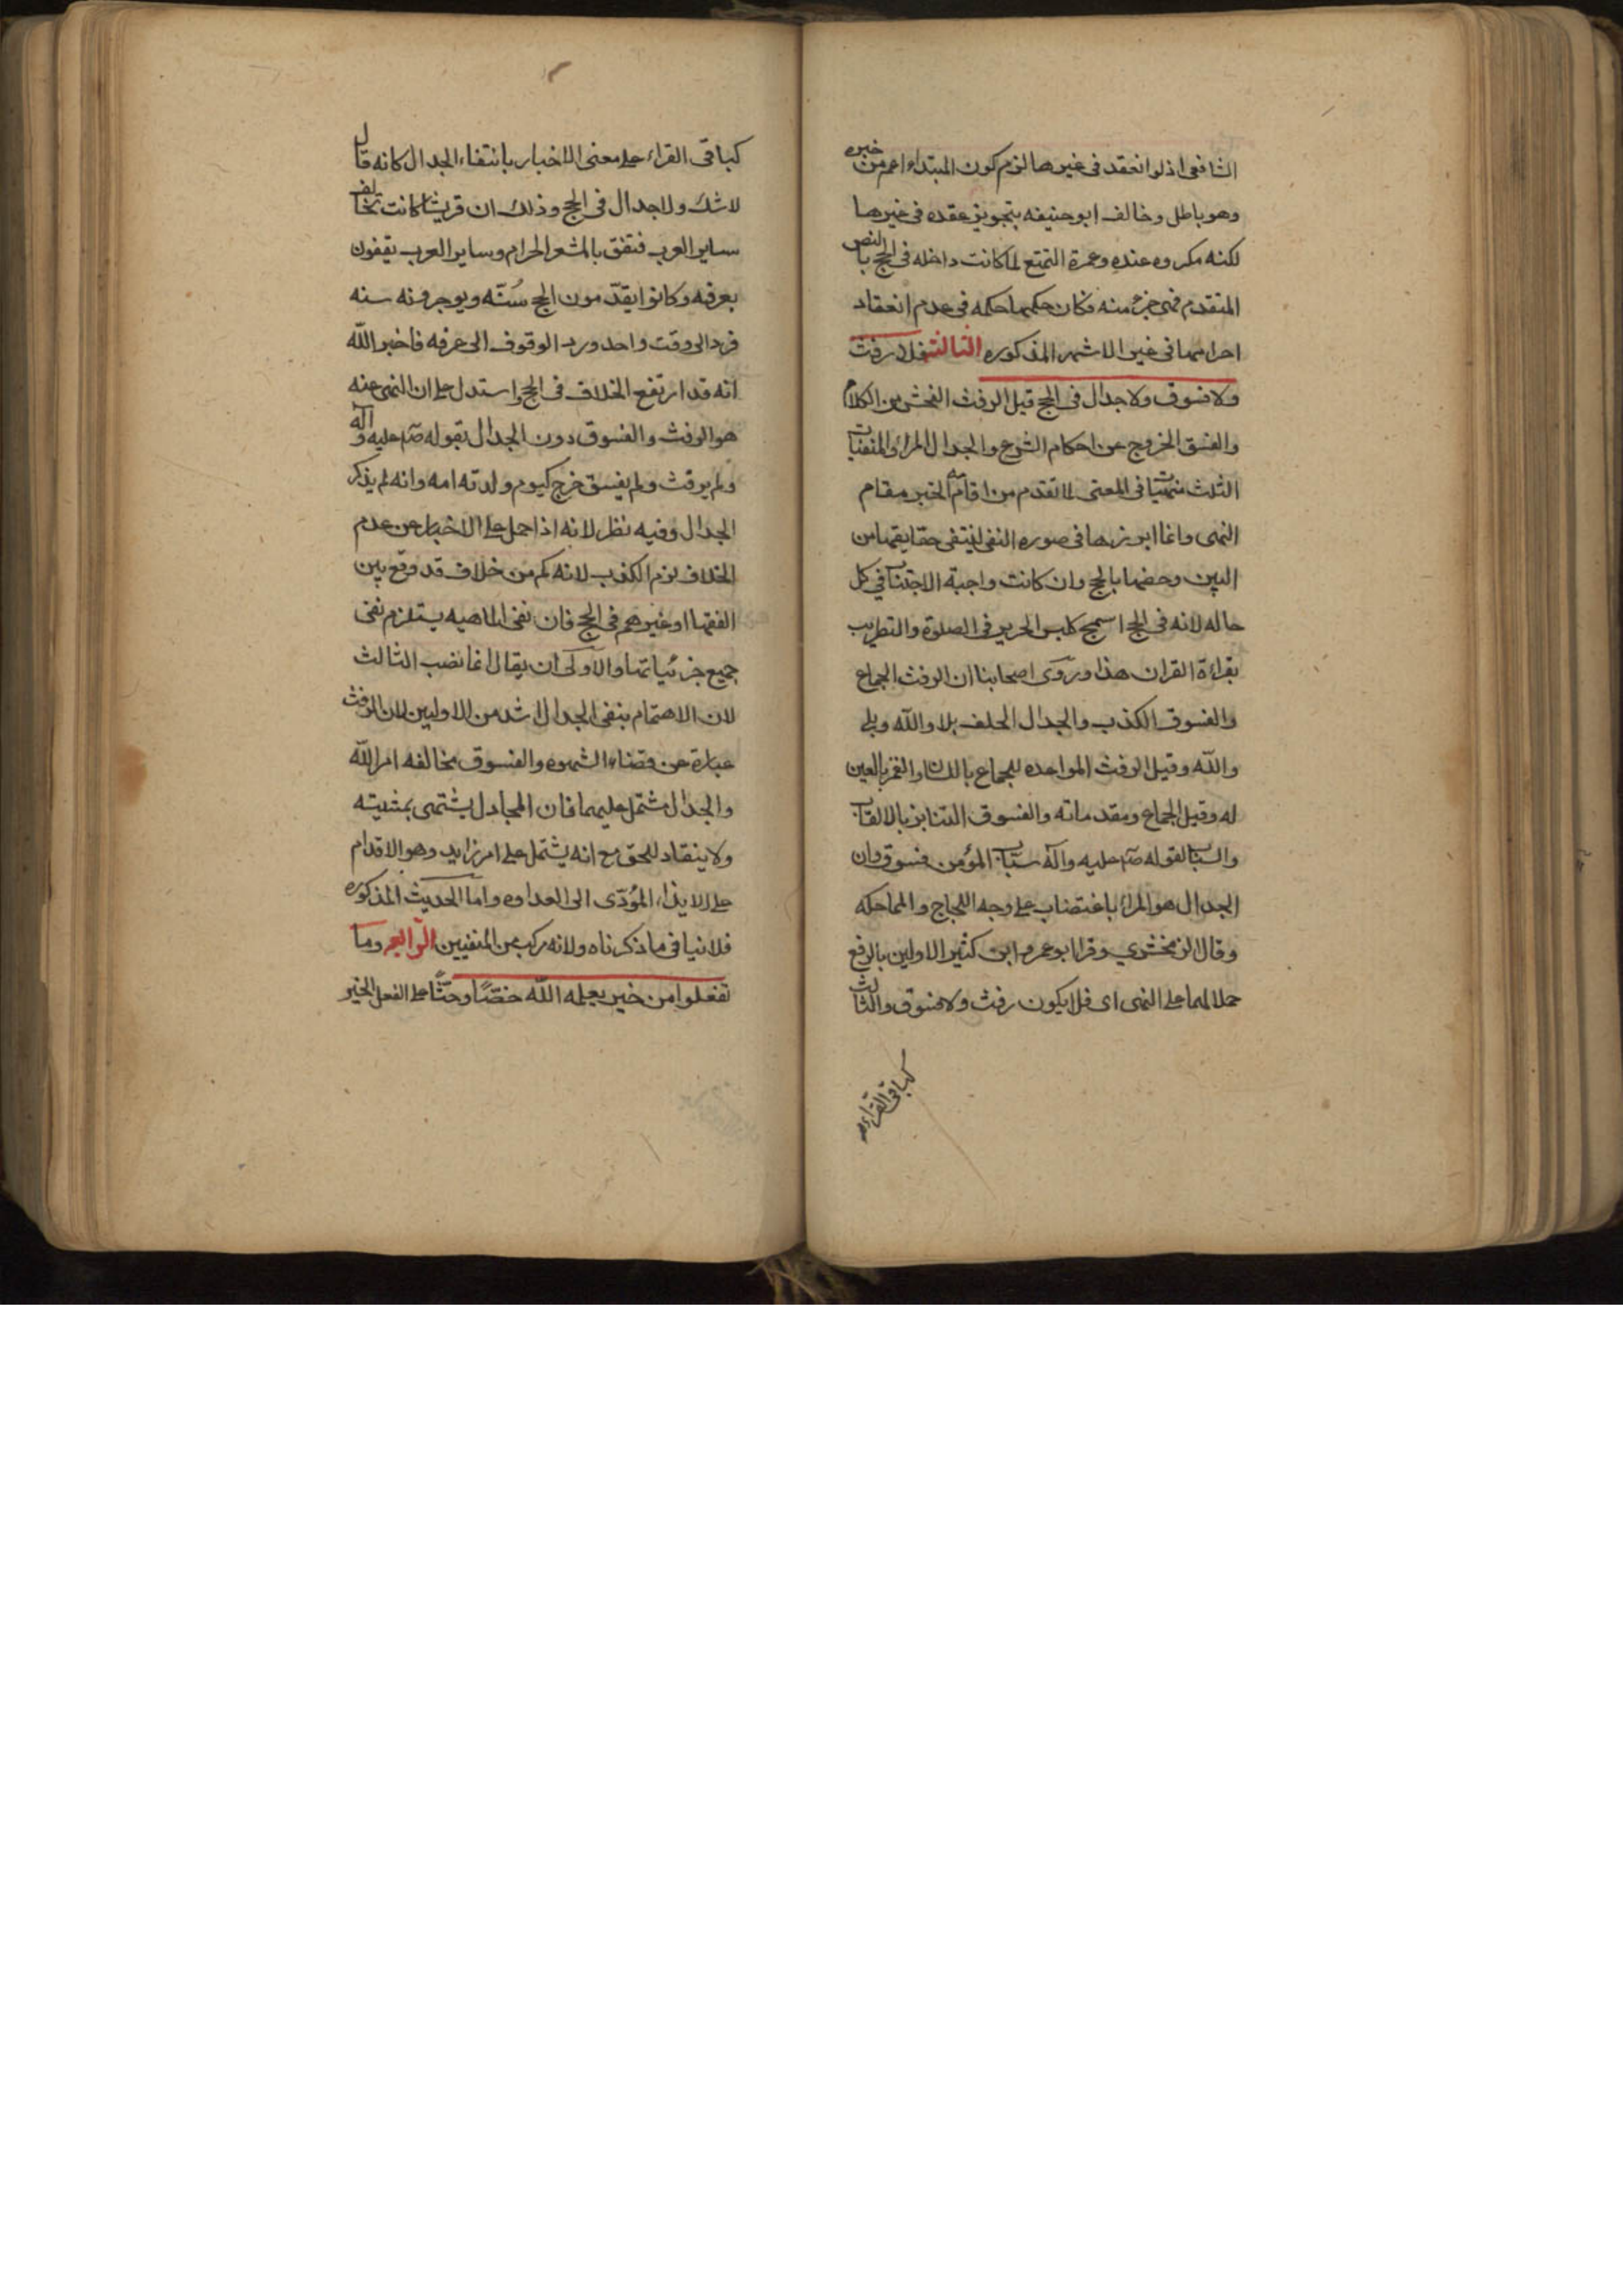 الشافعى اذ لو انعقد فى غيرها لزم كون المبتداء اعم من خبره
وهو باطل وخالف ابو حنيفه بتجويز عقده فى غيرها
لكنه مكروه عنده وعمرة التمتع لما كانت داخله فى الحج بالنص
المتقدم فهى جزء منه فكان حكمها حكمه فى عدم انعقاد
احرامها فى غير الاشهر المذكوره الثالثه فلا رفث
ولا فسوق ولا جدال فى الحج قيل الرفث الفحش من الكلام
والفسق الخروج عن احكام الشرع والجدال المراء والمنفيات
الثلث منهيات فى المعنى لما تقدم من اقامه الخبر مقام
النهى وانما ابرزها فى صوره النفى لينتفى حقايقها من
البين وخصها بالحج وان كانت واجبة الاجتناب فى كل
حاله لانه فى الحج اسمج كلبس الحرير فى الصلوة والتطريب
بقراءة القران هذا وروى اصحابنا ان الرفث الجماع
والفسوق الكذب والجدال الحلف بلا والله وبلى
والله وقيل الرفث المواعده للجماع باللسان والغمز بالعين
له وقيل الجماع ومقدماته والفسوق التنابز بالالقاب
والسباب لقوله صلم عليه وآله سباب المؤمن فسوق وان
الجدال هو المراء باغتضاب على وجه اللجاج والمماحكه
وقال الزمخشري وقرا ابو عمرو وابن كثير الاولين بالرفع
حملا لهما على النهى اى فلا يكون رفث ولا فسوق والثالث
كباقى القراء
كباقى القراء على معنى الاخبار بانتفاء الجدال كانه قال
لا شك ولا جدال فى الحج وذلك ان قريشا كانت تخالف
ساير العرب فتقف بالمشعر الحرام وساير العرب يقفون
بعرفه وكانوا يقدمون الحج سنه ويوخرونه سنه
فرد الى وقت واحد ورد الوقوف الى عرفه فاخبر الله
انه قد ارتفع الخلاف فى الحج واستدل على ان النهى عنه
هو الرفث والفسوق دون الجدال بقوله صلم عليه وآله
ولم يرفث ولم يفسق خرج كيوم ولدته امه وانه لم يذكر
الجدال وفيه نظر لانه اذا حمل على الاخبار عن عدم
الخلاف لزم الكذب لانه كم من خلاف قد وقع بين
الفقها او غيرهم فى الحج فان نفى الماهيه يستلزم نفى
جميع جزئياتها والاولى ان يقال انما نصب الثالث
لان الاهتمام بنفى الجدال اشد من الاولين لان الرفث
عبارة عن قضاء الشهوه والفسوق مخالفه امر الله
والجدال مشتمل عليهما فان المجادل يشتهى بمشيته
ولا ينقاد للحق مع انه يشتمل على امر زايد وهو الاقدام
على الايذاء المؤدى الى العداوه واما الحديث المذكوره
فلا ينافى ما ذكرناه ولانه مركب من المنفيين الرابعه وما
تفعلوا من خير يعلمه الله حضا وحثا على الفعل الخير